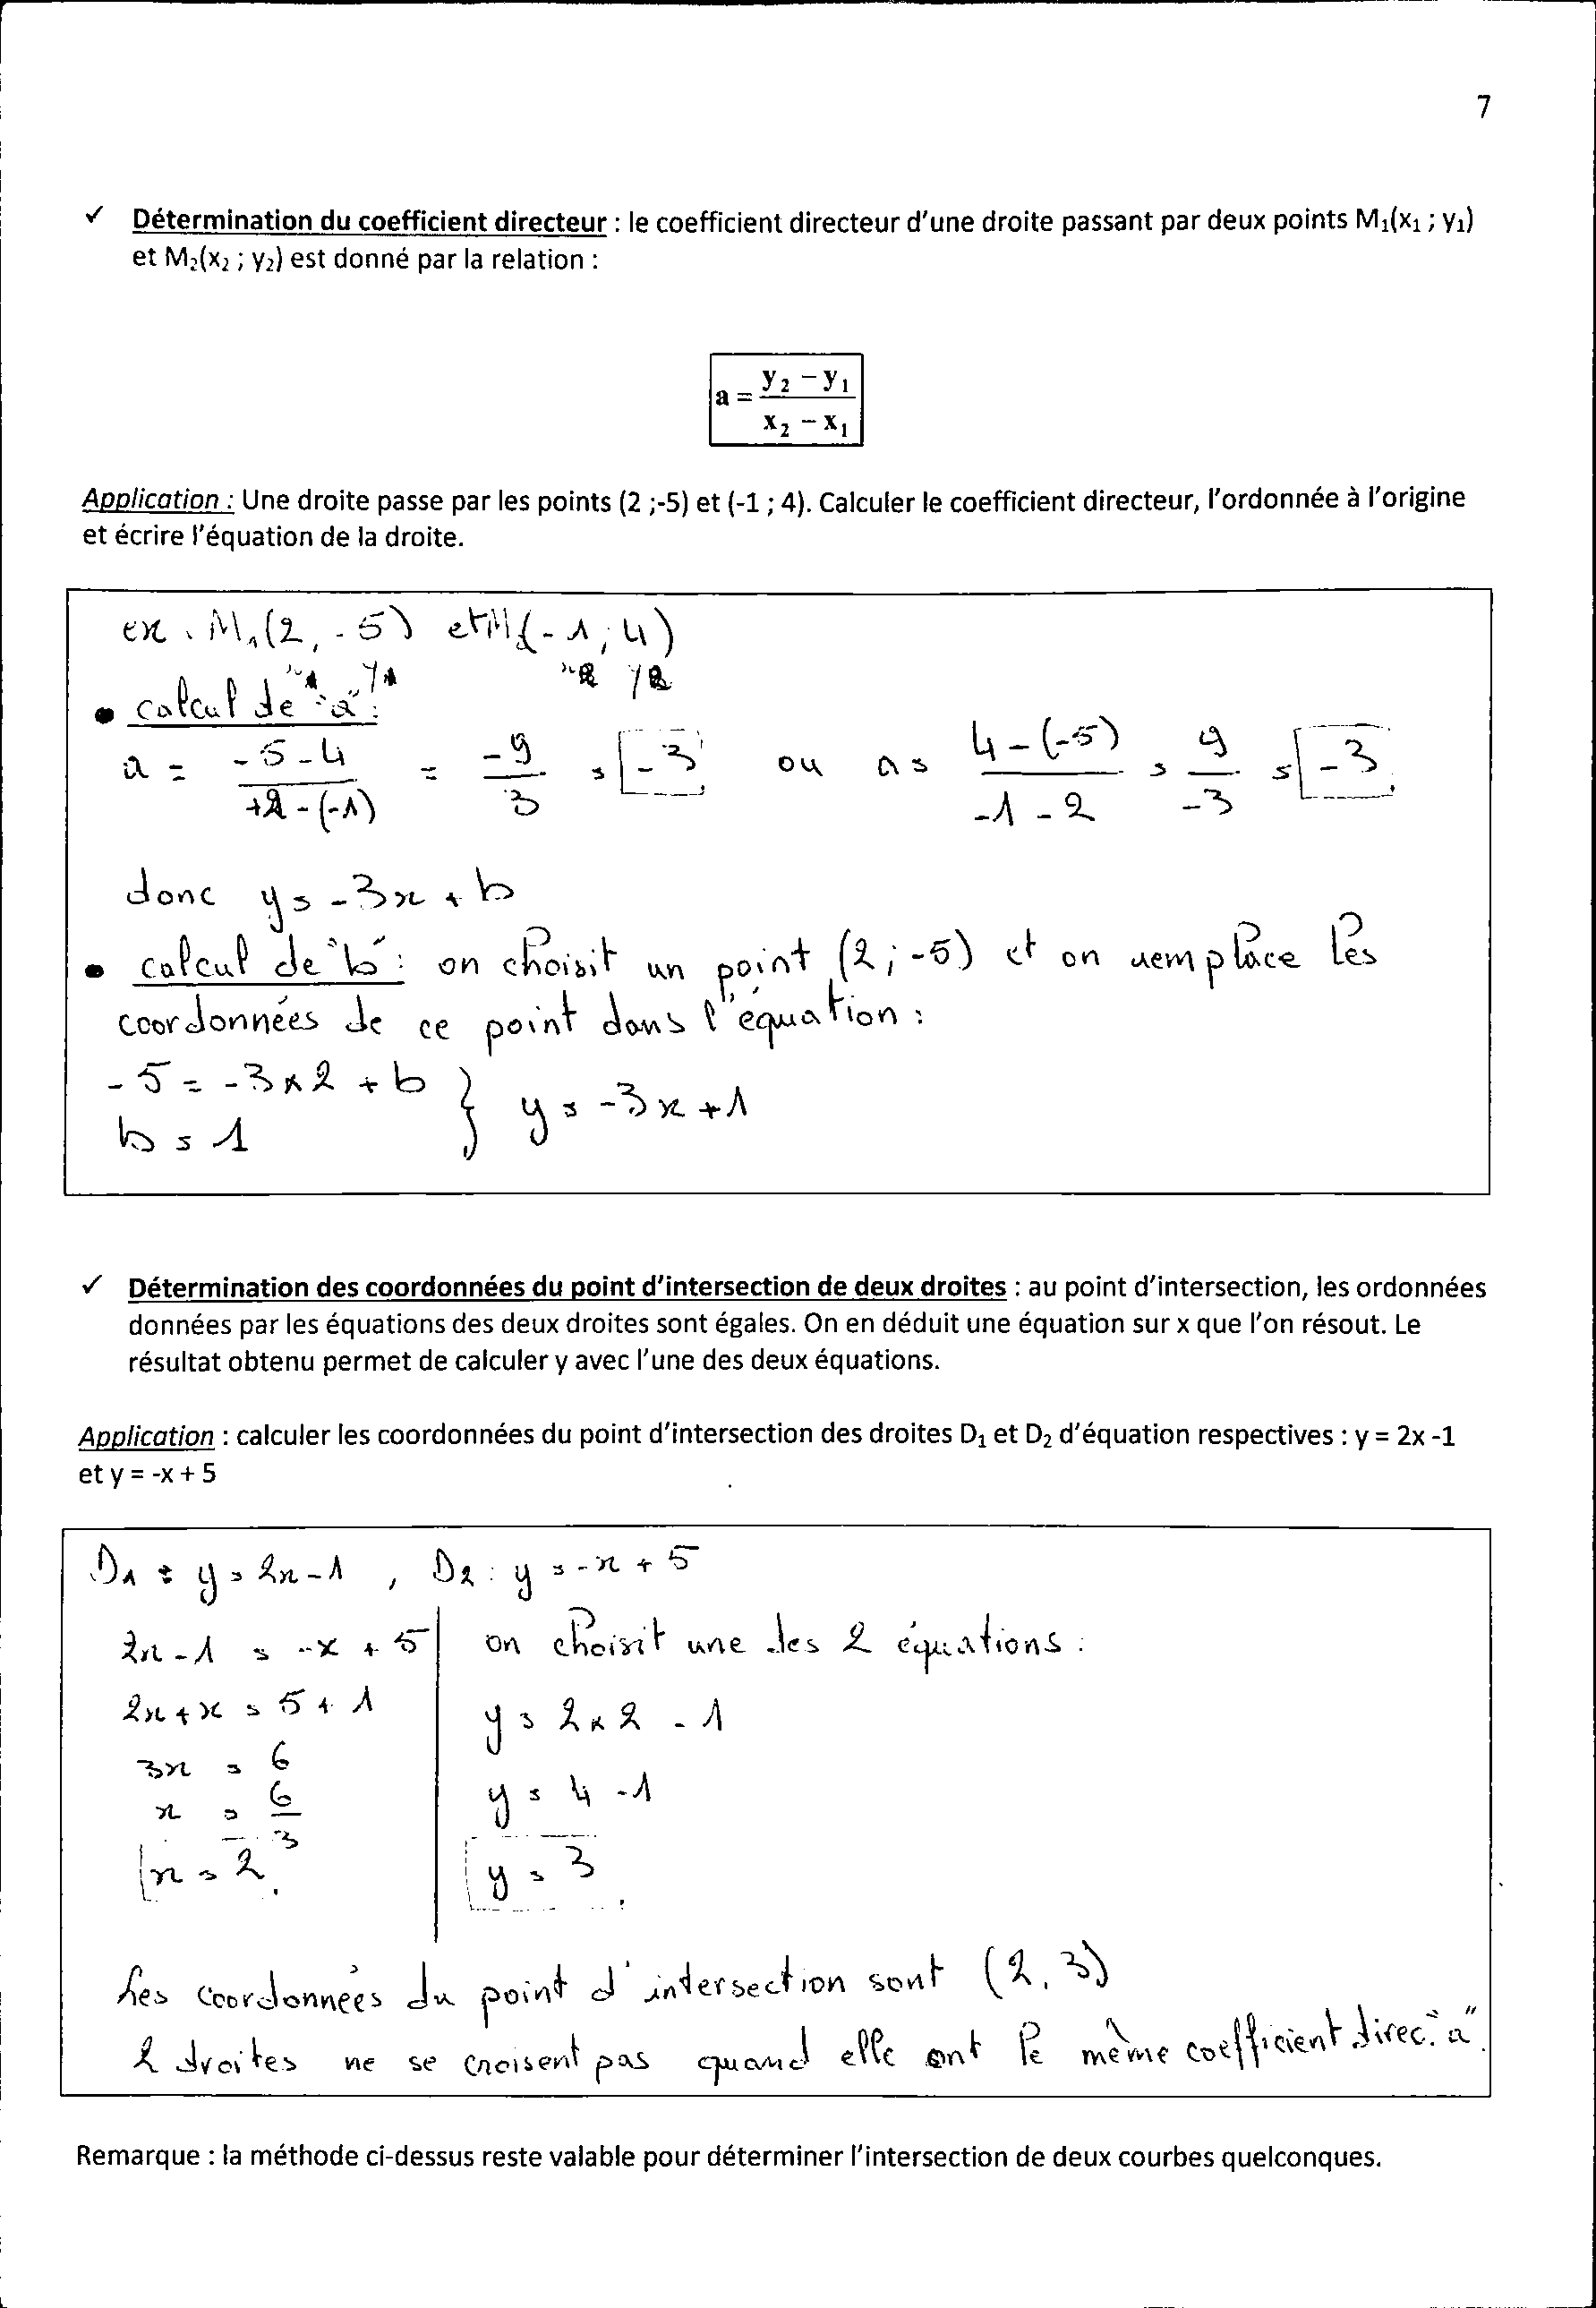 7
✓ Détermination du coefficient directeur : le coefficient directeur d'une droite passant par deux points M₁(x₁ ; y₁)
et M₂(x₂ ; y₂) est donné par la relation :
a = (y₂ − y₁) / (x₂ − x₁)
Application : Une droite passe par les points (2 ;-5) et (-1 ; 4). Calculer le coefficient directeur, l'ordonnée à l'origine
et écrire l'équation de la droite.
ex. M₁(2, -5) et M₂(-1; 4)
x₁ y₁ x₂ y₂
• calcul de "a":
a = (-5-4) / (+2-(-1)) = -9/3 = -3 ou a = (4-(-5)) / (-1-2) = 9/-3 = -3
donc y = -3x + b
• calcul de "b": on choisit un point (2; -5) et on remplace les
coordonnées de ce point dans l'équation :
-5 = -3×2 + b
b = 1 } y = -3x + 1
✓ Détermination des coordonnées du point d'intersection de deux droites : au point d'intersection, les ordonnées
données par les équations des deux droites sont égales. On en déduit une équation sur x que l'on résout. Le
résultat obtenu permet de calculer y avec l'une des deux équations.
Application : calculer les coordonnées du point d'intersection des droites D₁ et D₂ d'équation respectives : y = 2x -1
et y = -x + 5
D₁ : y = 2x - 1 , D₂ : y = -x + 5
2x - 1 = -x + 5
2x + x = 5 + 1
3x = 6
x = 6/3
x = 2
on choisit une des 2 équations :
y = 2×2 - 1
y = 4 - 1
y = 3
Les coordonnées du point d'intersection sont (2, 3)
2 droites ne se croisent pas quand elle ont le même coefficient direc. "a".
Remarque : la méthode ci-dessus reste valable pour déterminer l'intersection de deux courbes quelconques.